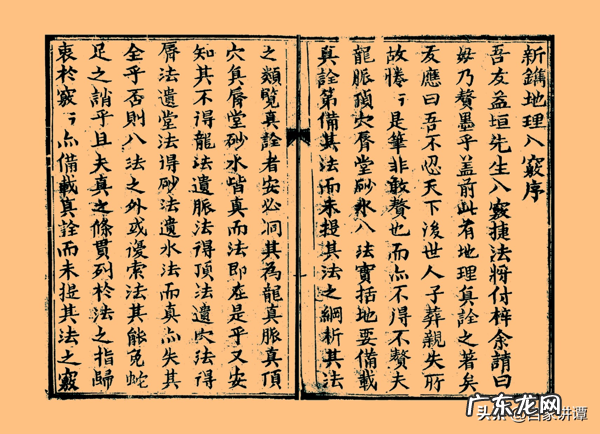 新鐫地理八竅序
吾友益垣先生八竅捷法將付梓余請曰
毋乃贅墨乎盖前此有地理真詮之著矣
友應曰吾不忍天下後世人子葬親失所
故惓〻是筆非敢贅也而亦不得不贅夫
龍脉頂穴唇堂砂水八法實括地要備載
真詮第備其法而未提其法之綱析其法
之類覽真詮者安必洞其為龍真脉真頂
穴真唇堂砂水皆真而法即在是乎又安
知其不得龍法遺脉法得頂法遺穴法得
唇法遺堂法得砂法遺水法而真亦失其
全乎否則八法之外或復索法其能免蛇
足之誚乎且夫真之條貫列於法之指歸
衷於竅〻亦備載真詮而未提其法之竅
广东龙网
头条 @百家讲谭